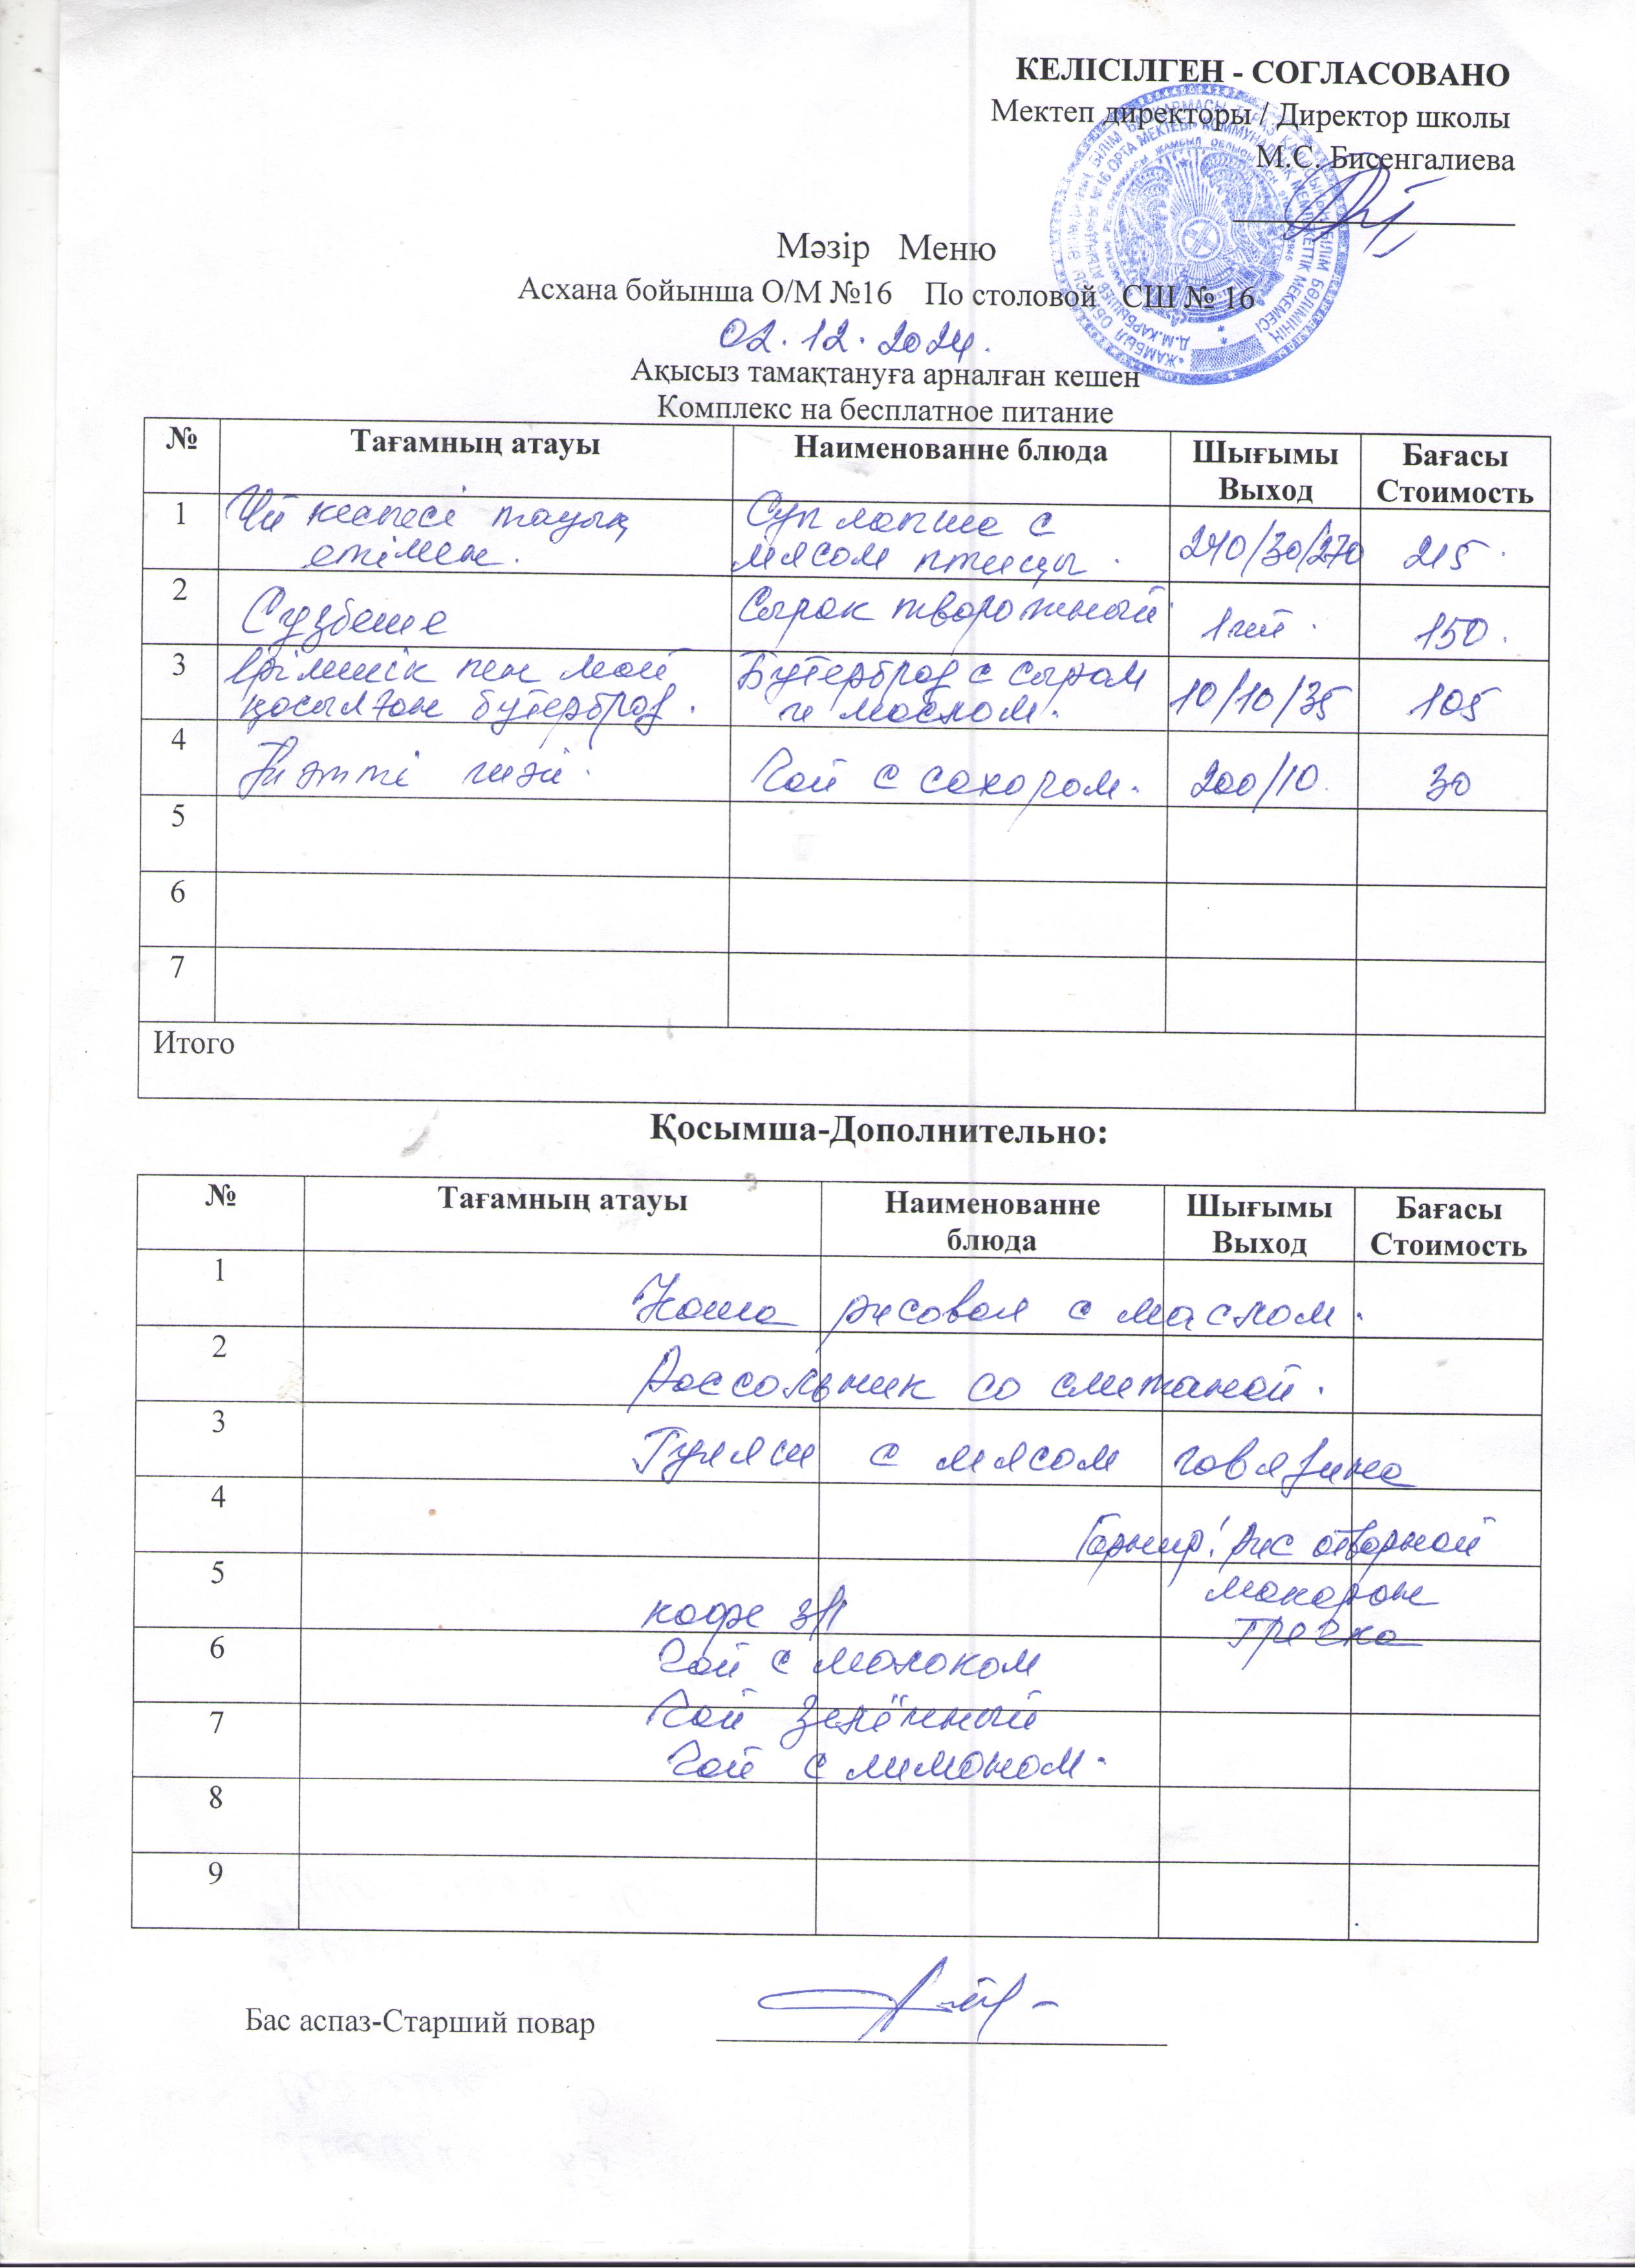 КЕЛІСІЛГЕН - СОГЛАСОВАНО
Мектеп директоры / Директор школы
М.С. Бисенгалиева
Мәзір Меню
Асхана бойынша О/М №16 По столовой СШ № 16
02.12.2024.
Ақысыз тамақтануға арналған кешен
Комплекс на бесплатное питание
№ Тағамның атауы Наименованне блюда Шығымы Выход Бағасы Стоимость
1 Үй кеспесі тауық Суп лапша с
етімен. мясом птицы. 240/30/270 215.
2 Сүзбеше Сырок творожный 1шт. 150.
3 Ірімшік пен май Бутерброд с сыром
қосылған бутерброд. и маслом. 10/10/35 105
4 Тәтті шәй. Чай с сахаром. 200/10. 30
5
6
7
Итого
Қосымша-Дополнительно:
№ Тағамның атауы Наименованне блюда Шығымы Выход Бағасы Стоимость
1 Каша рисовая с маслом.
2 Рассольник со сметаной.
3 Гуляш с мясом говядина
4 Гарнир: Рис отварной
5 макарон
кофе 3/1 Гречка
6 Чай с молоком
7 Чай зелённый
Чай с лимоном.
8
9
Бас аспаз-Старший повар